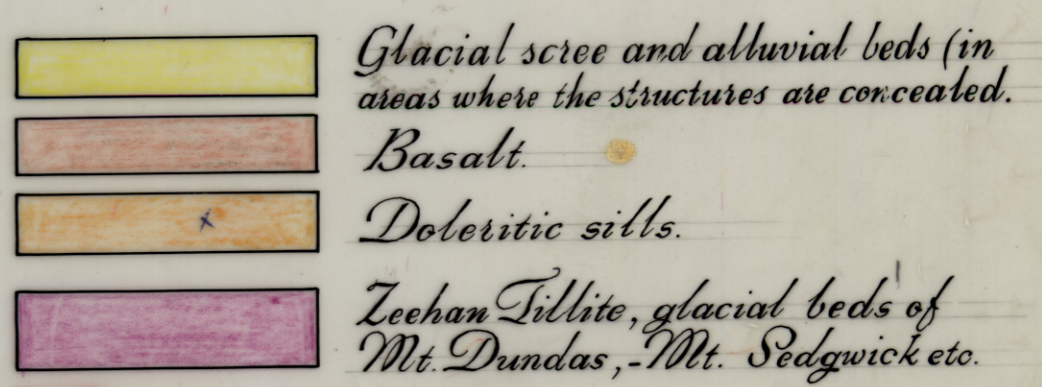 Glacial scree and alluvial beds (in
areas where the structures are concealed.
Basalt.
x
Doleritic sills.
Zeehan Tillite, glacial beds of
Mt. Dundas,-Mt. Sedgwick etc.